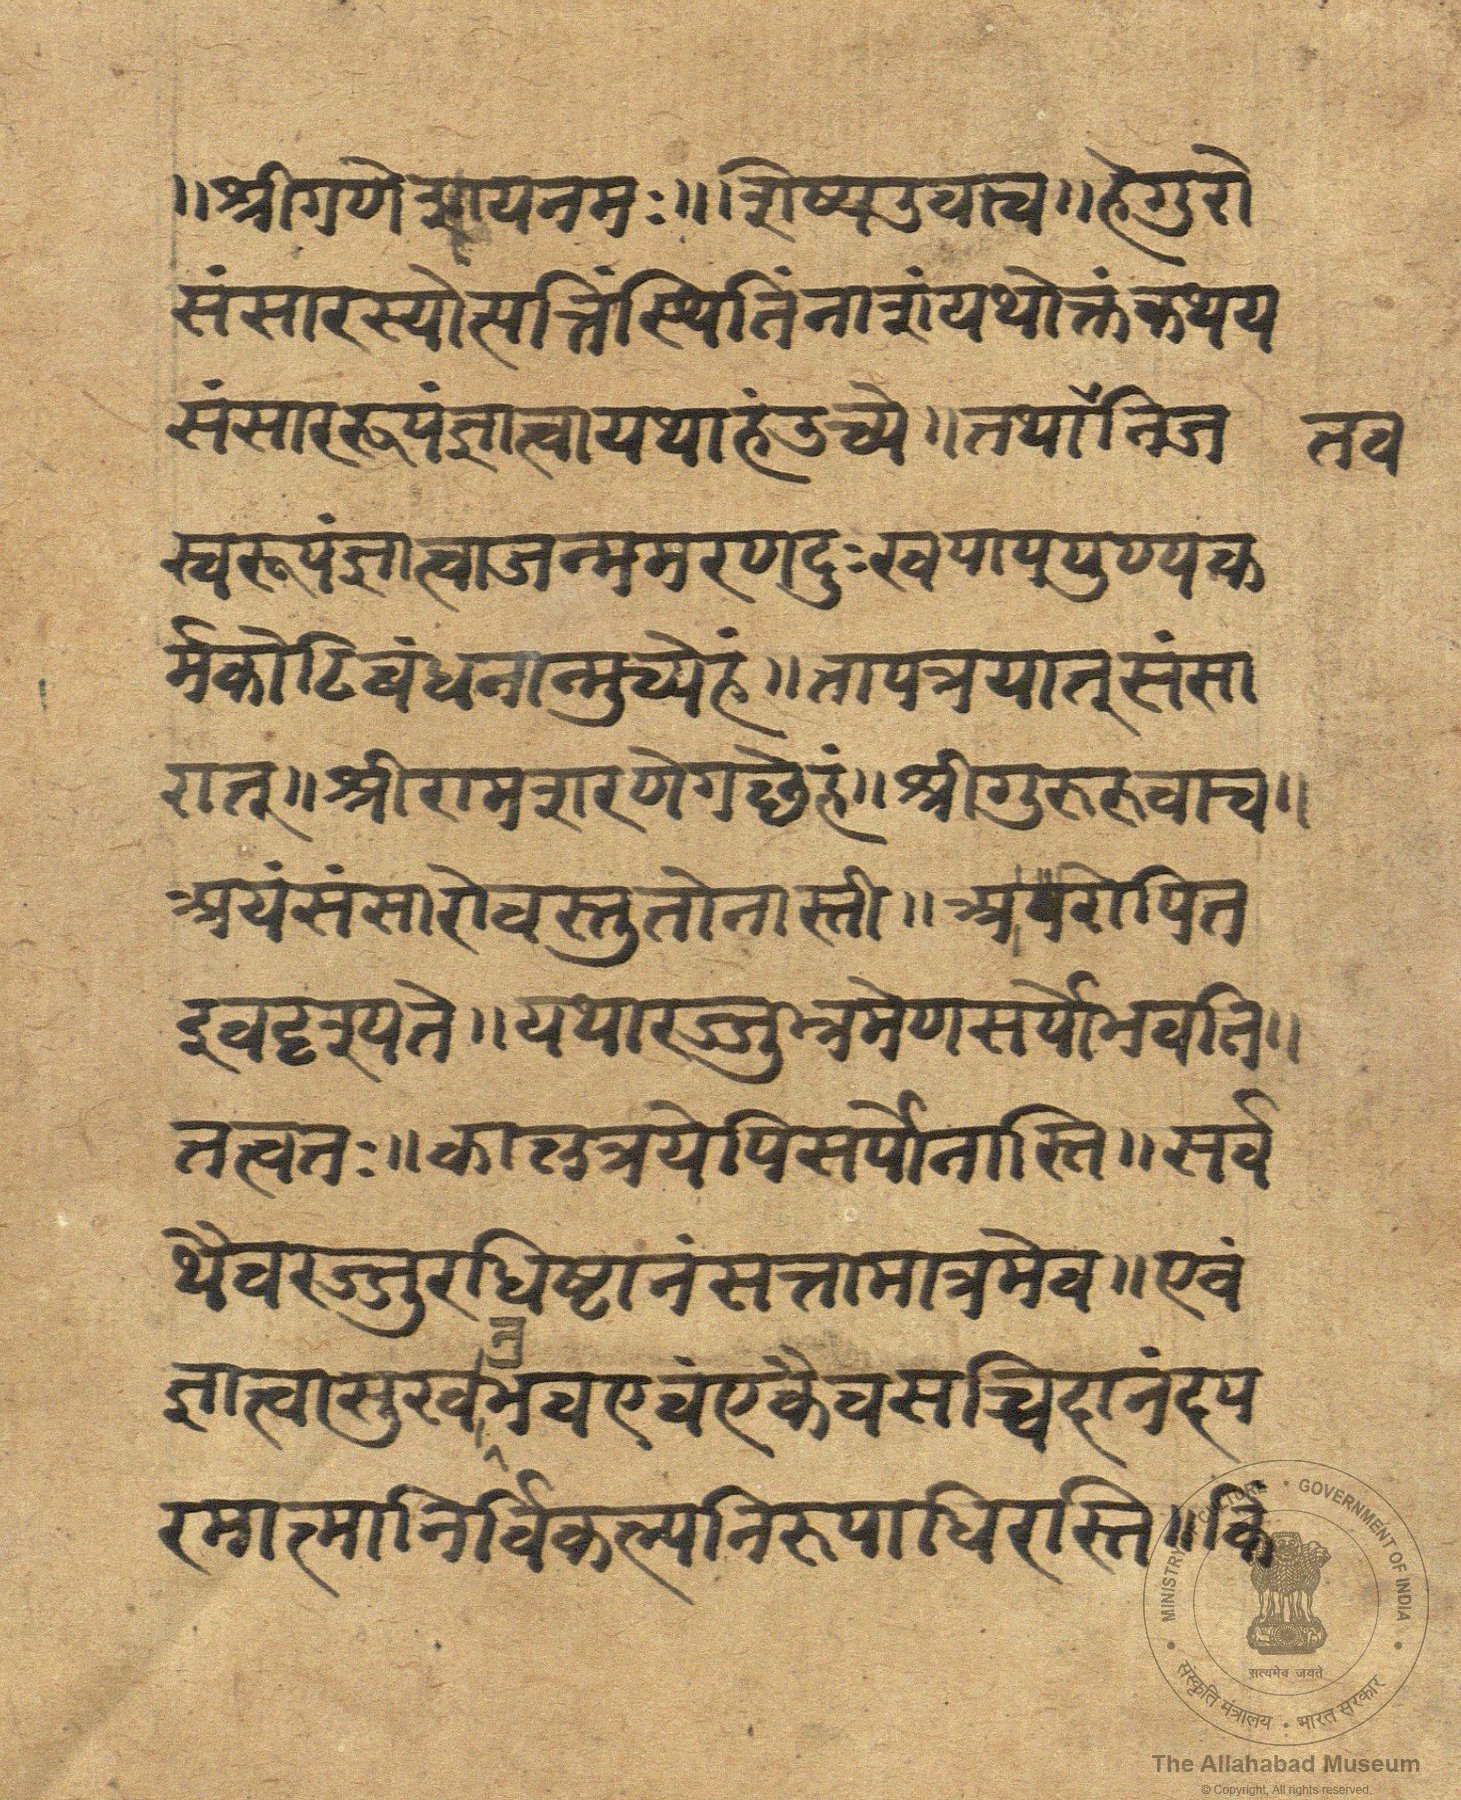 ॥श्रीगणेशायनमः॥शिष्यउवाच॥हेगुरो
संसारस्योत्पत्तिंस्थितिंनाशंयथोक्तंकथय
संसाररूपंज्ञात्वायथाहंउच्ये॥तथाँनिज तव
स्वरूपंज्ञात्वाजन्ममरणदुःखपापपुण्यक
र्मकोटिबंधनान्मुच्येहं॥तापत्रयात्संसा
रात्॥श्रीरामशरणेगच्छेहं॥श्रीगुरूरुवाच॥
अयंसंसारोवस्तुतोनास्ती॥ इवदृश्यते॥यथारज्जुभ्रमेणसर्पोभवति॥
तत्वतः॥कालत्रयेपिसर्पोनास्ति॥सर्व
थैवरज्जुरधिष्टानंसत्तामात्रमेव॥एवं
ज्ञात्वासुखंभवएवंएकैवसच्चिदानंदप
रमात्मानिर्विकल्पनिरुपाधिरस्ति॥किं
MINISTRY OF CULTURE • GOVERNMENT OF INDIA
सत्यमेव जयते
संस्कृति मंत्रालय • भारत सरकार
The Allahabad Museum
© Copyright, All rights reserved.